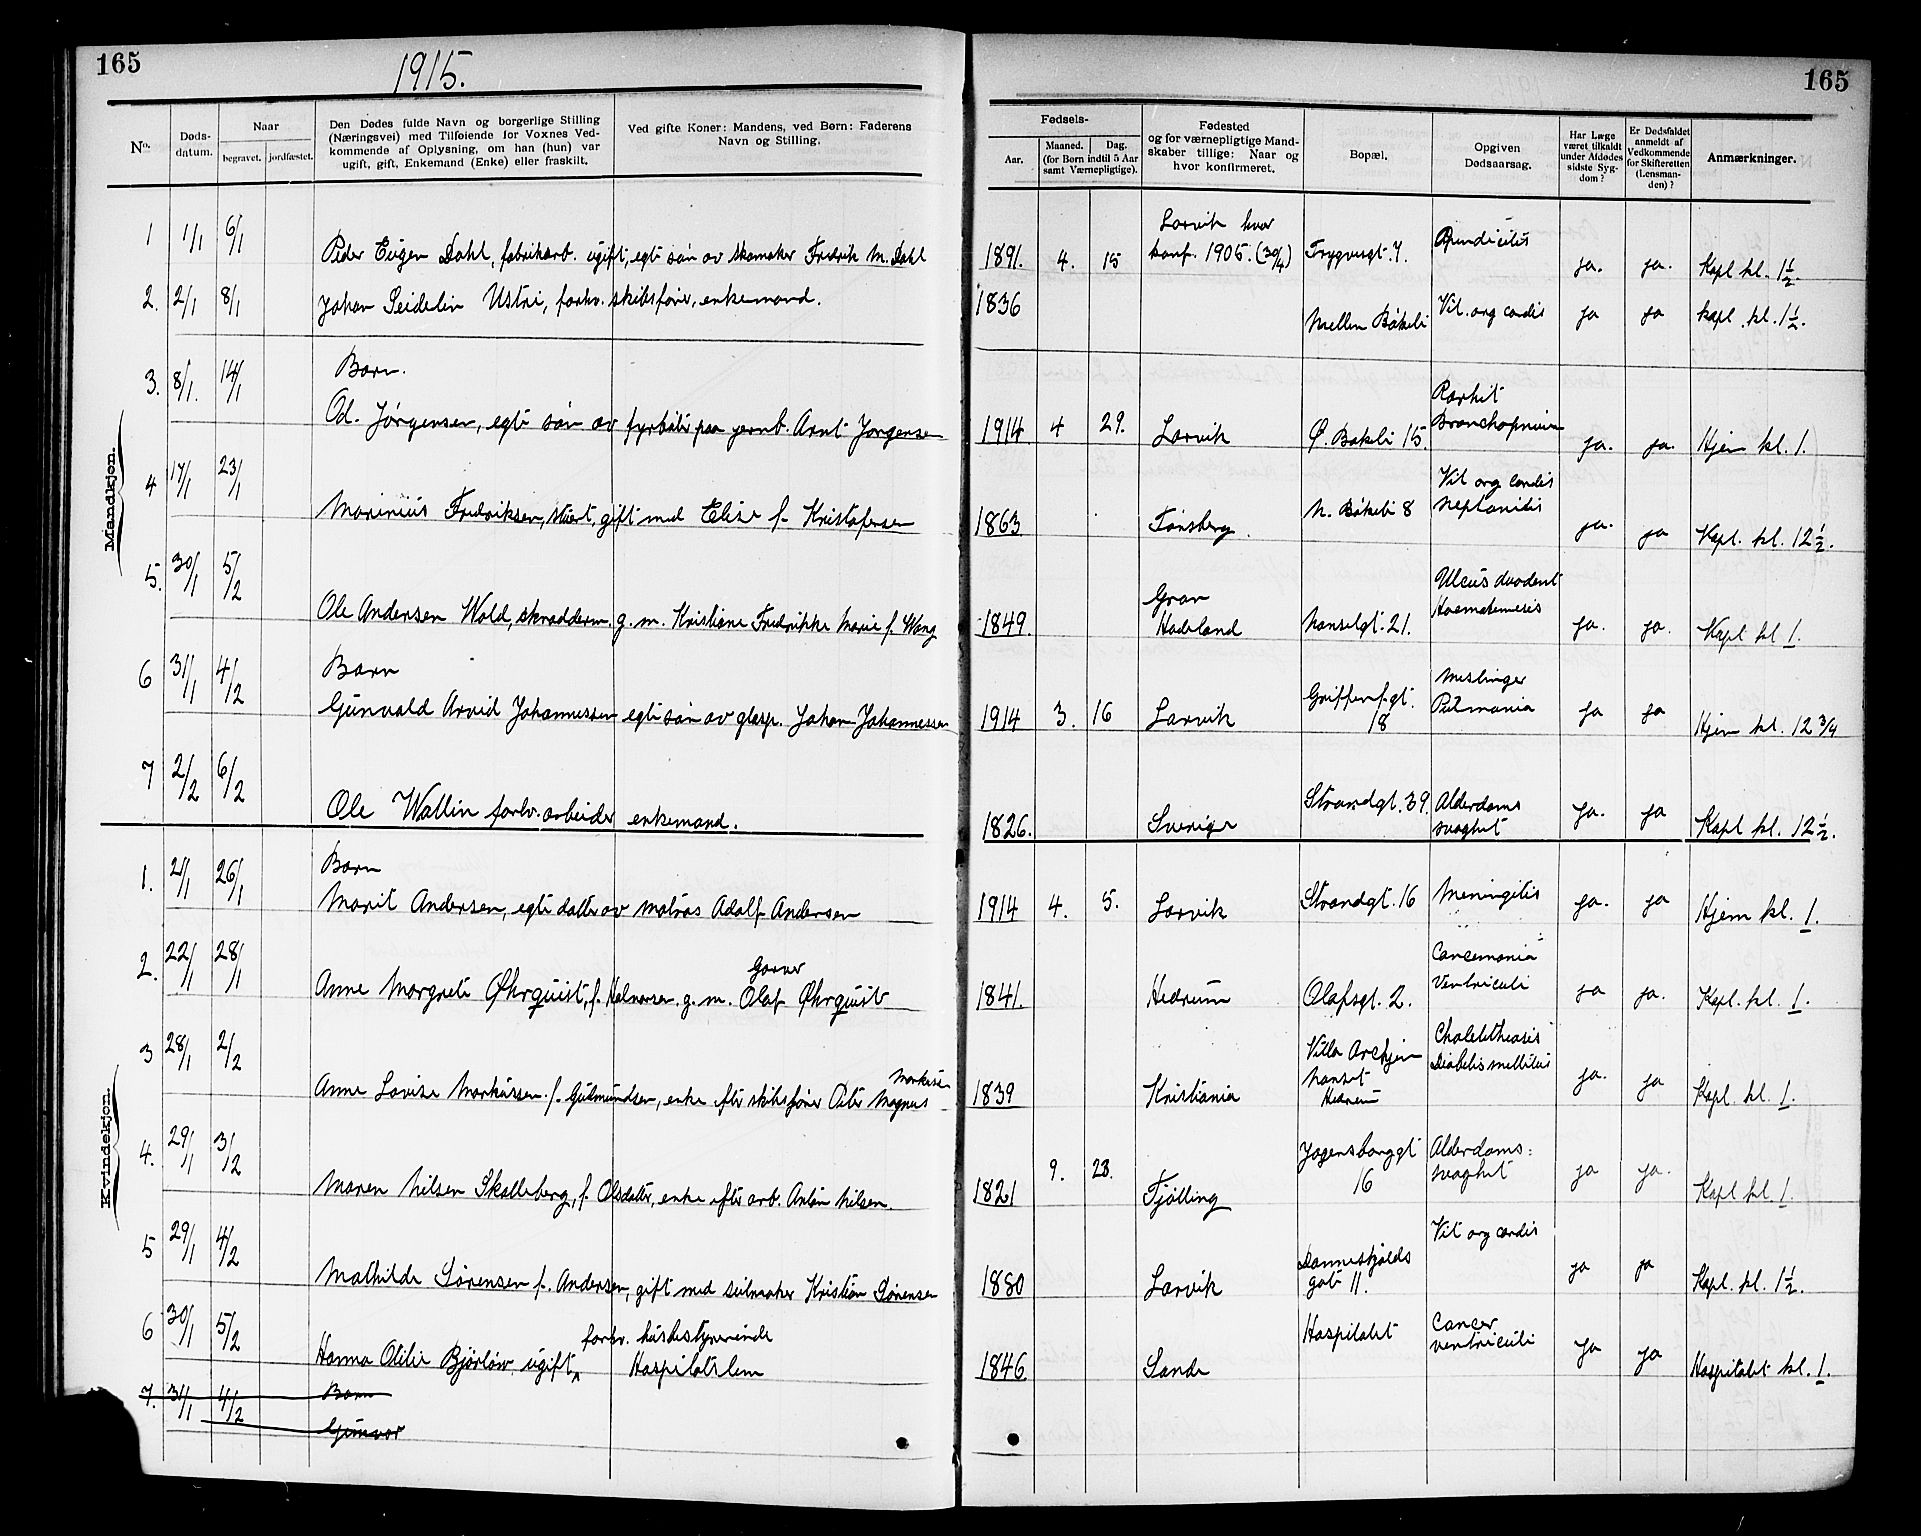 165
1915.
165
No.
Døds-
datum.
Naar
begravet.
jordfæstet.
Den Dødes fulde Navn og borgerlige Stilling
(Næringsvei) med Tilføiende for Voxnes Ved-
kommende af Oplysning, om han (hun) var
ugift, gift, Enkemand (Enke) eller fraskilt.
Ved gifte Koner: Mandens, ved Børn: Faderens
Navn og Stilling.
Fødsels-
Aar.
Maaned.
Dag.
(for Børn indtil 5 Aar
samt Værnepligtige).
Fødested
og for værnepligtige Mand-
skaber tillige: Naar og
hvor konfirmeret.
Bopæl.
Opgiven
Dødsaarsag.
Har Læge
været tilkaldt
under Afdødes
sidste Syg-
dom?
Er Dødsfaldet
anmeldt af
Vedkommende
for Skifteretten
(Lensman-
den)?
Anmærkninger.
Mandkjøn.
1 1/1 6/1 Peder Eugen Dahl, fabrikarb. ugift, egte søn av skomaker Fredrik M. Dahl 1891. 4. 15 Larvik hvor
konf. 1905. (30/4) Trygvesgt. 7. Apendicitis ja. ja. Kapl kl. 1½
2. 2/1 8/1 Johan Seidelin Ustri, forhv. skibsfører, enkemand. 1836 Mellem Bøkeli Vit. org cordis ja ja kapl. kl. 1½.
3. 8/1. 14/1 Barn.
Od. Jørgensen, egte søn av fyrbøter paa jernb. Arnt Jørgensen 1914 4 29. Larvik Ø. Bøkeli 15. Rachit
Bronchopneum ja. ja. Hjem kl. 1.
4 17/1 23/1 Marinius Fredriksen, stuert, gift med Elise f. Kristofersen 1863 Tønsberg. N. Bøkeli 8 Vit org cordis
Nephritis ja. ja Kapl. kl. 12½.
5. 30/1 5/2 Ole Andersen Wold, skrædderm. g. m. Kristiane Fredrikke Marie f. Wang 1849. Gran
Hadeland Nanselgt. 21. Ulcus duodeni
Haematemesis ja. ja. Kapl kl 1.
6 31/1 4/2 Barn
Gunvald Arvid Johannessen egte søn av glasp. Johan Johannessen 1914 3. 16 Larvik Griffenf.gt.
18 Meslinger
Pulmonia ja ja Hjem kl. 12 3/4
7 2/2 6/2 Ole Wallin forhv. arbeider enkemand. 1826. Sverige Strandgt. 39. Alderdoms
svaghet ja. ja Kapl kl. 12½.
Kvindekjøn.
1. 21/1 26/1 Barn
Marit Andersen, egte datter av matros Adolf Andersen 1914 4. 5. Larvik Strandgt. 16 Meningitis ja. ja Hjem kl. 1.
2. 22/1 28/1 Garver
Anne Margrete Øhrquist, f. Halvorsen. g. m. Olaf Øhrquist 1841. Hedrum Olafsgt. 2. Carcemonia
Ventriculi ja ja. Kapl. kl. 1.
3 28/1 2/2 Markusen
Anne Lovise Markussen f. Gudmundsen, enke efter skibsfører Peter Magnus 1839 Kristiania Villa
Nanset
Hedrum Cholelitheasis
Diabetis mellitus ja. ja Kapl. kl. 1.
4. 29/1 3/2 Maren Nilsen Skalleberg, f. Olsdatter, enke efter arb. Anton Nilsen. 1821 9. 23. Tjølling Jegersborggt
16 Alderdoms:
svaghet ja ja. Kapl kl. 1.
5 29/1 4/2 Mathilde Sørensen f. Andersen, gift med seilmaker Kristian Sørensen 1880 Larvik Danneskjølds
gate 11. Vit org cordis ja ja Kapl. kl. 1½.
6 30/1 5/2 forhv. husbestyrerinde
Hanna Otilie Bjørløw ugift, Hospitalslem 1846 Sande Hospitalet Cancer
ventriculi ja ja Hospitalet kl. 1.
7. 31/1 4/2 Barn
Gunvor